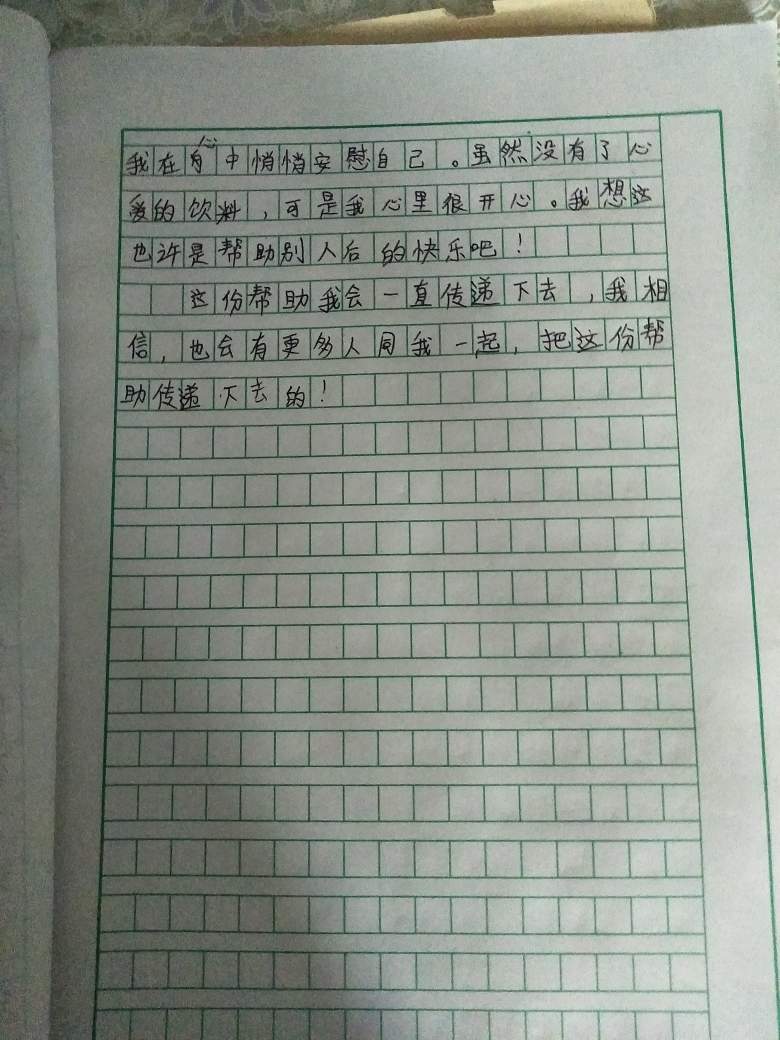 我在心中悄悄安慰自己。虽然没有了心
爱的饮料，可是我心里很开心。我想这
也许是帮助别人后的快乐吧！
这份帮助我会一直传递下去，我相
信，也会有更多人同我一起，把这份帮
助传递下去的！